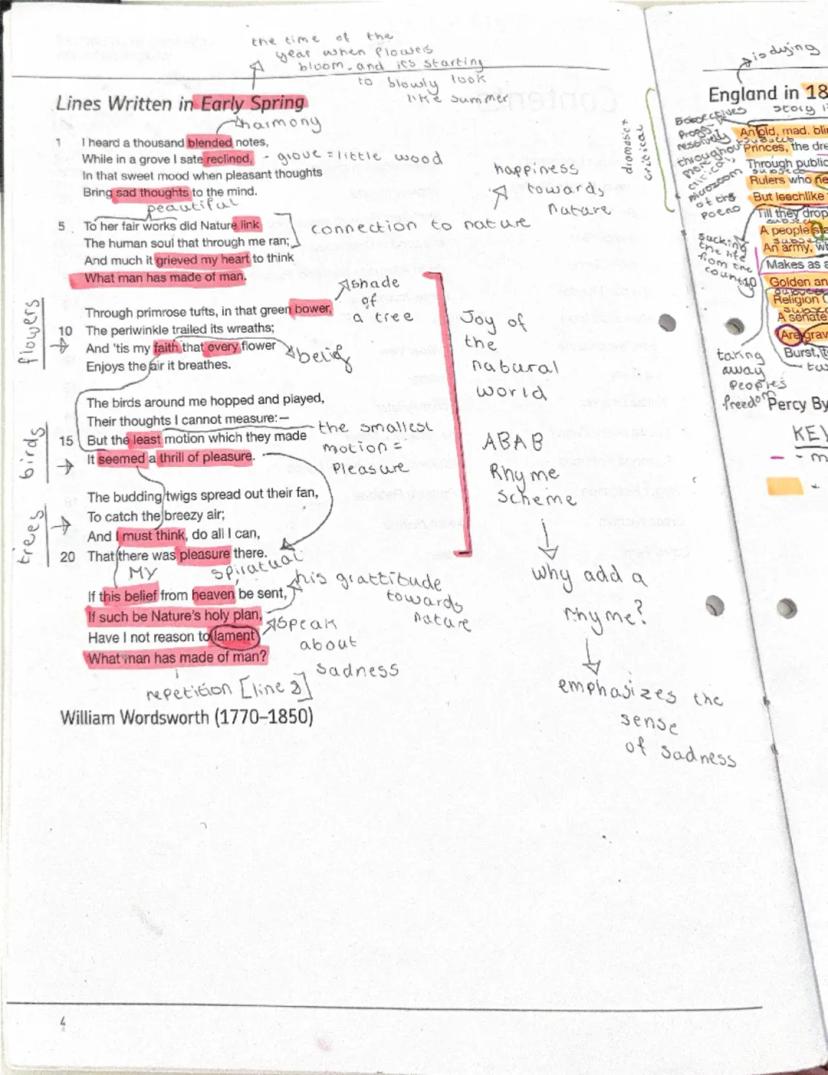 the time of the
year when flowers
bloom, and it's starting
to slowly look
like summer
Lines Written in Early Spring
harmony
1 I heard a thousand blended notes,
While in a grove I sate reclined, - grove = little wood
In that sweet mood when pleasant thoughts
Bring sad thoughts to the mind.
peautiful
happiness
towards
nature
5 To her fair works did Nature link
The human soul that through me ran;
connection to nature
And much it grieved my heart to think
What man has made of man.
flowers
Through primrose tufts, in that green bower,
shade
of
a tree
10 The periwinkle trailed its wreaths;
And 'tis my faith that every flower
belief
Enjoys the air it breathes.
birds
The birds around me hopped and played,
Their thoughts I cannot measure:—
15 But the least motion which they made
It seemed a thrill of pleasure.
the smallest
motion =
Pleasure
trees
The budding twigs spread out their fan,
To catch the breezy air;
And I must think, do all I can,
20 That there was pleasure there.
MY
spiratual
If this belief from heaven be sent,
If such be Nature's holy plan,
his grattitude
towards
nature
Have I not reason to lament
What man has made of man?
speak
about
sadness
repetition [line 8]
William Wordsworth (1770–1850)
Joy of
the
natural
world
ABAB
Rhyme
scheme
why add a
rhyme?
emphasizes the
sense
of sadness
4
is dying
England in 18
story
dramatic +
critical
An old, mad, bli
Princes, the dre
Through public
Rulers who ne
But leechlike
Till they drop
A people sta
An army, w
Makes as a
10 Golden an
Religion C
A senate
Are grav
Burst, t
throughout
of the
Poem
sucking
the life
from the
country
taking
away
Peoples
freedom
Percy By
KEY